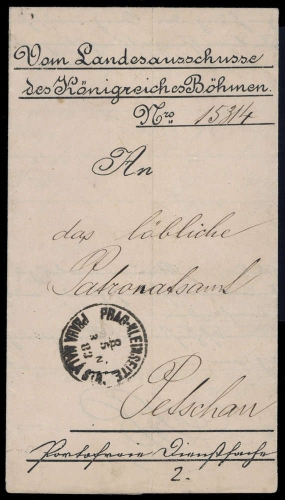 Vom Landesausschusse
des Königreiches Böhmen.
Nro. 15314
An
das löbliche
Patronatsamt
PRAG-KLEINSEITE
PRAHA MALÁ STR.
8
5
83
Petschau
Portofreie Dienstsache
2.